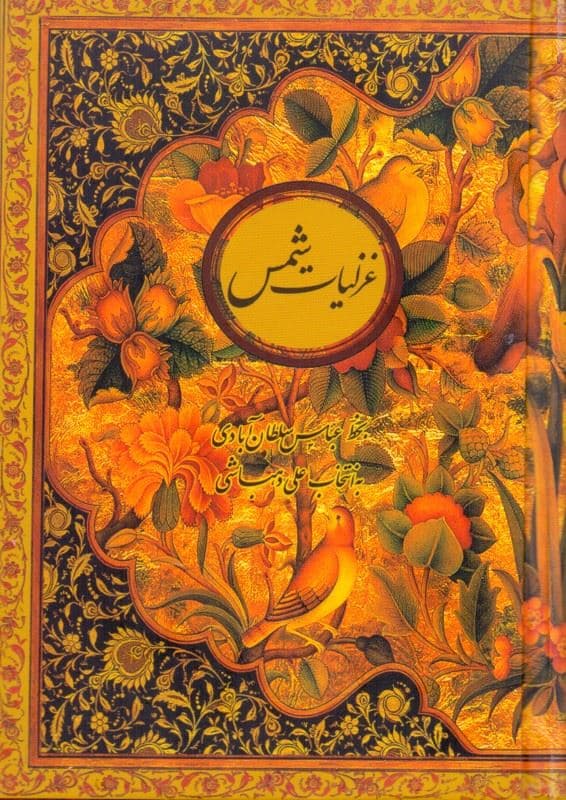 غزلیات شمس
بخط عباس سلطان آبادی
به انتخاب علی دهباشی